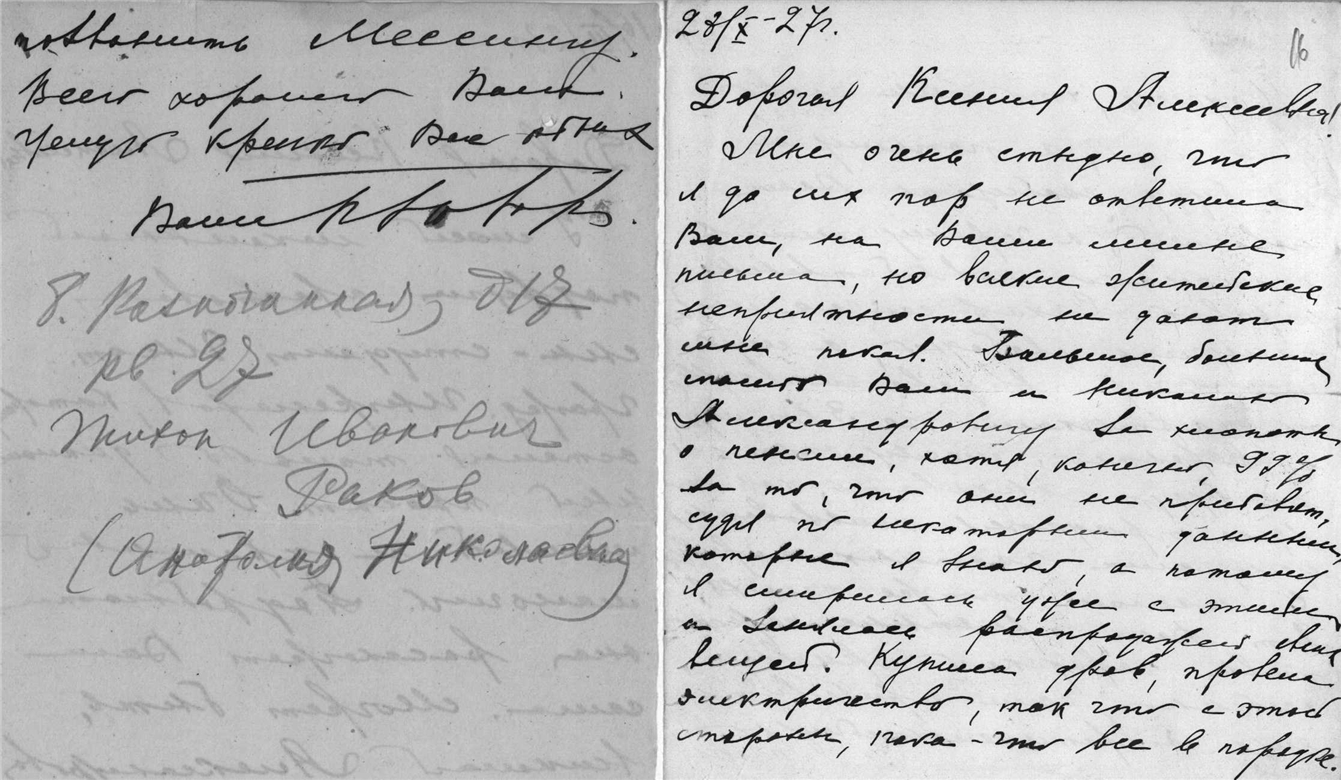 позвонить Мессингу.
Всего хорошего Вам.
Целую крепко Вас обоих
Ваша
д 17
кв. 27
Тихон Иванович
Раков
(Анатолия Николаевна)
28/X-27г.
16
Дорогая Ксения Алексеевна!
Мне очень стыдно, что
я до сих пор не ответила
Вам, на Ваши милые
письма, но всякие житейские
неприятности не дают
мне покоя. Большое, большое
спасибо Вам и Николаю
Александровичу за хлопоты
о пенсии, хотя, конечно, 99%
за то, что они не прибавят,
судя по некоторым данным,
которые я знаю, а потому
я смирилась уже с этим
и занялась распродажей своих
вещей. Купила дров, провела
электричество, так что с этой
стороны, пока-что все в порядке.